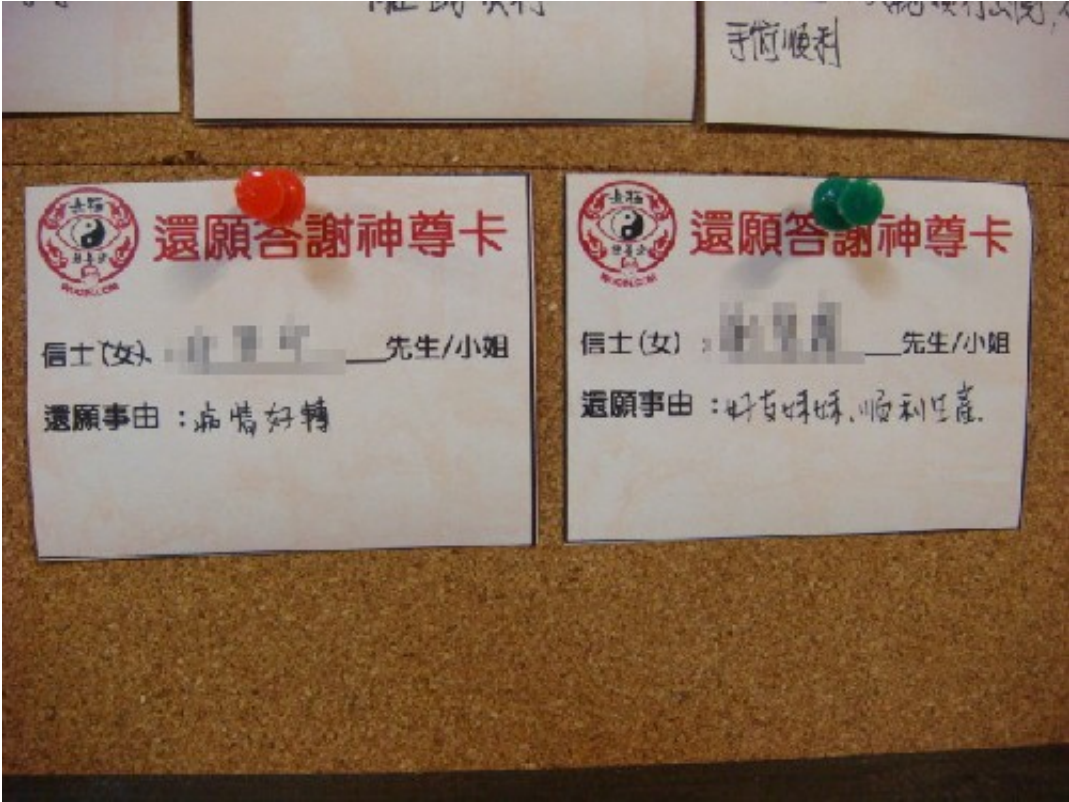 手術順利
還願答謝神尊卡
信士(女)、 先生/小姐
還願事由：病情好轉
還願答謝神尊卡
信士(女)： 先生/小姐
還願事由：好友妹妹、順利生產.